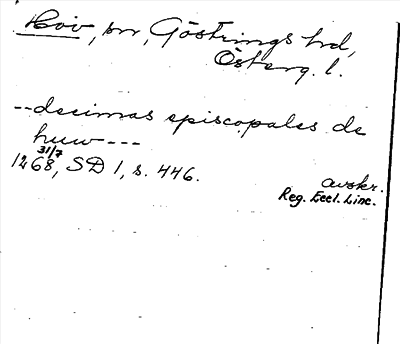 Hov, sn, Göstrings hd,
Österg. l.
--decimas episcopales de
huw---
31/7
1268, SD 1, s. 446.
avskr.
Reg. Eccl. Linc.